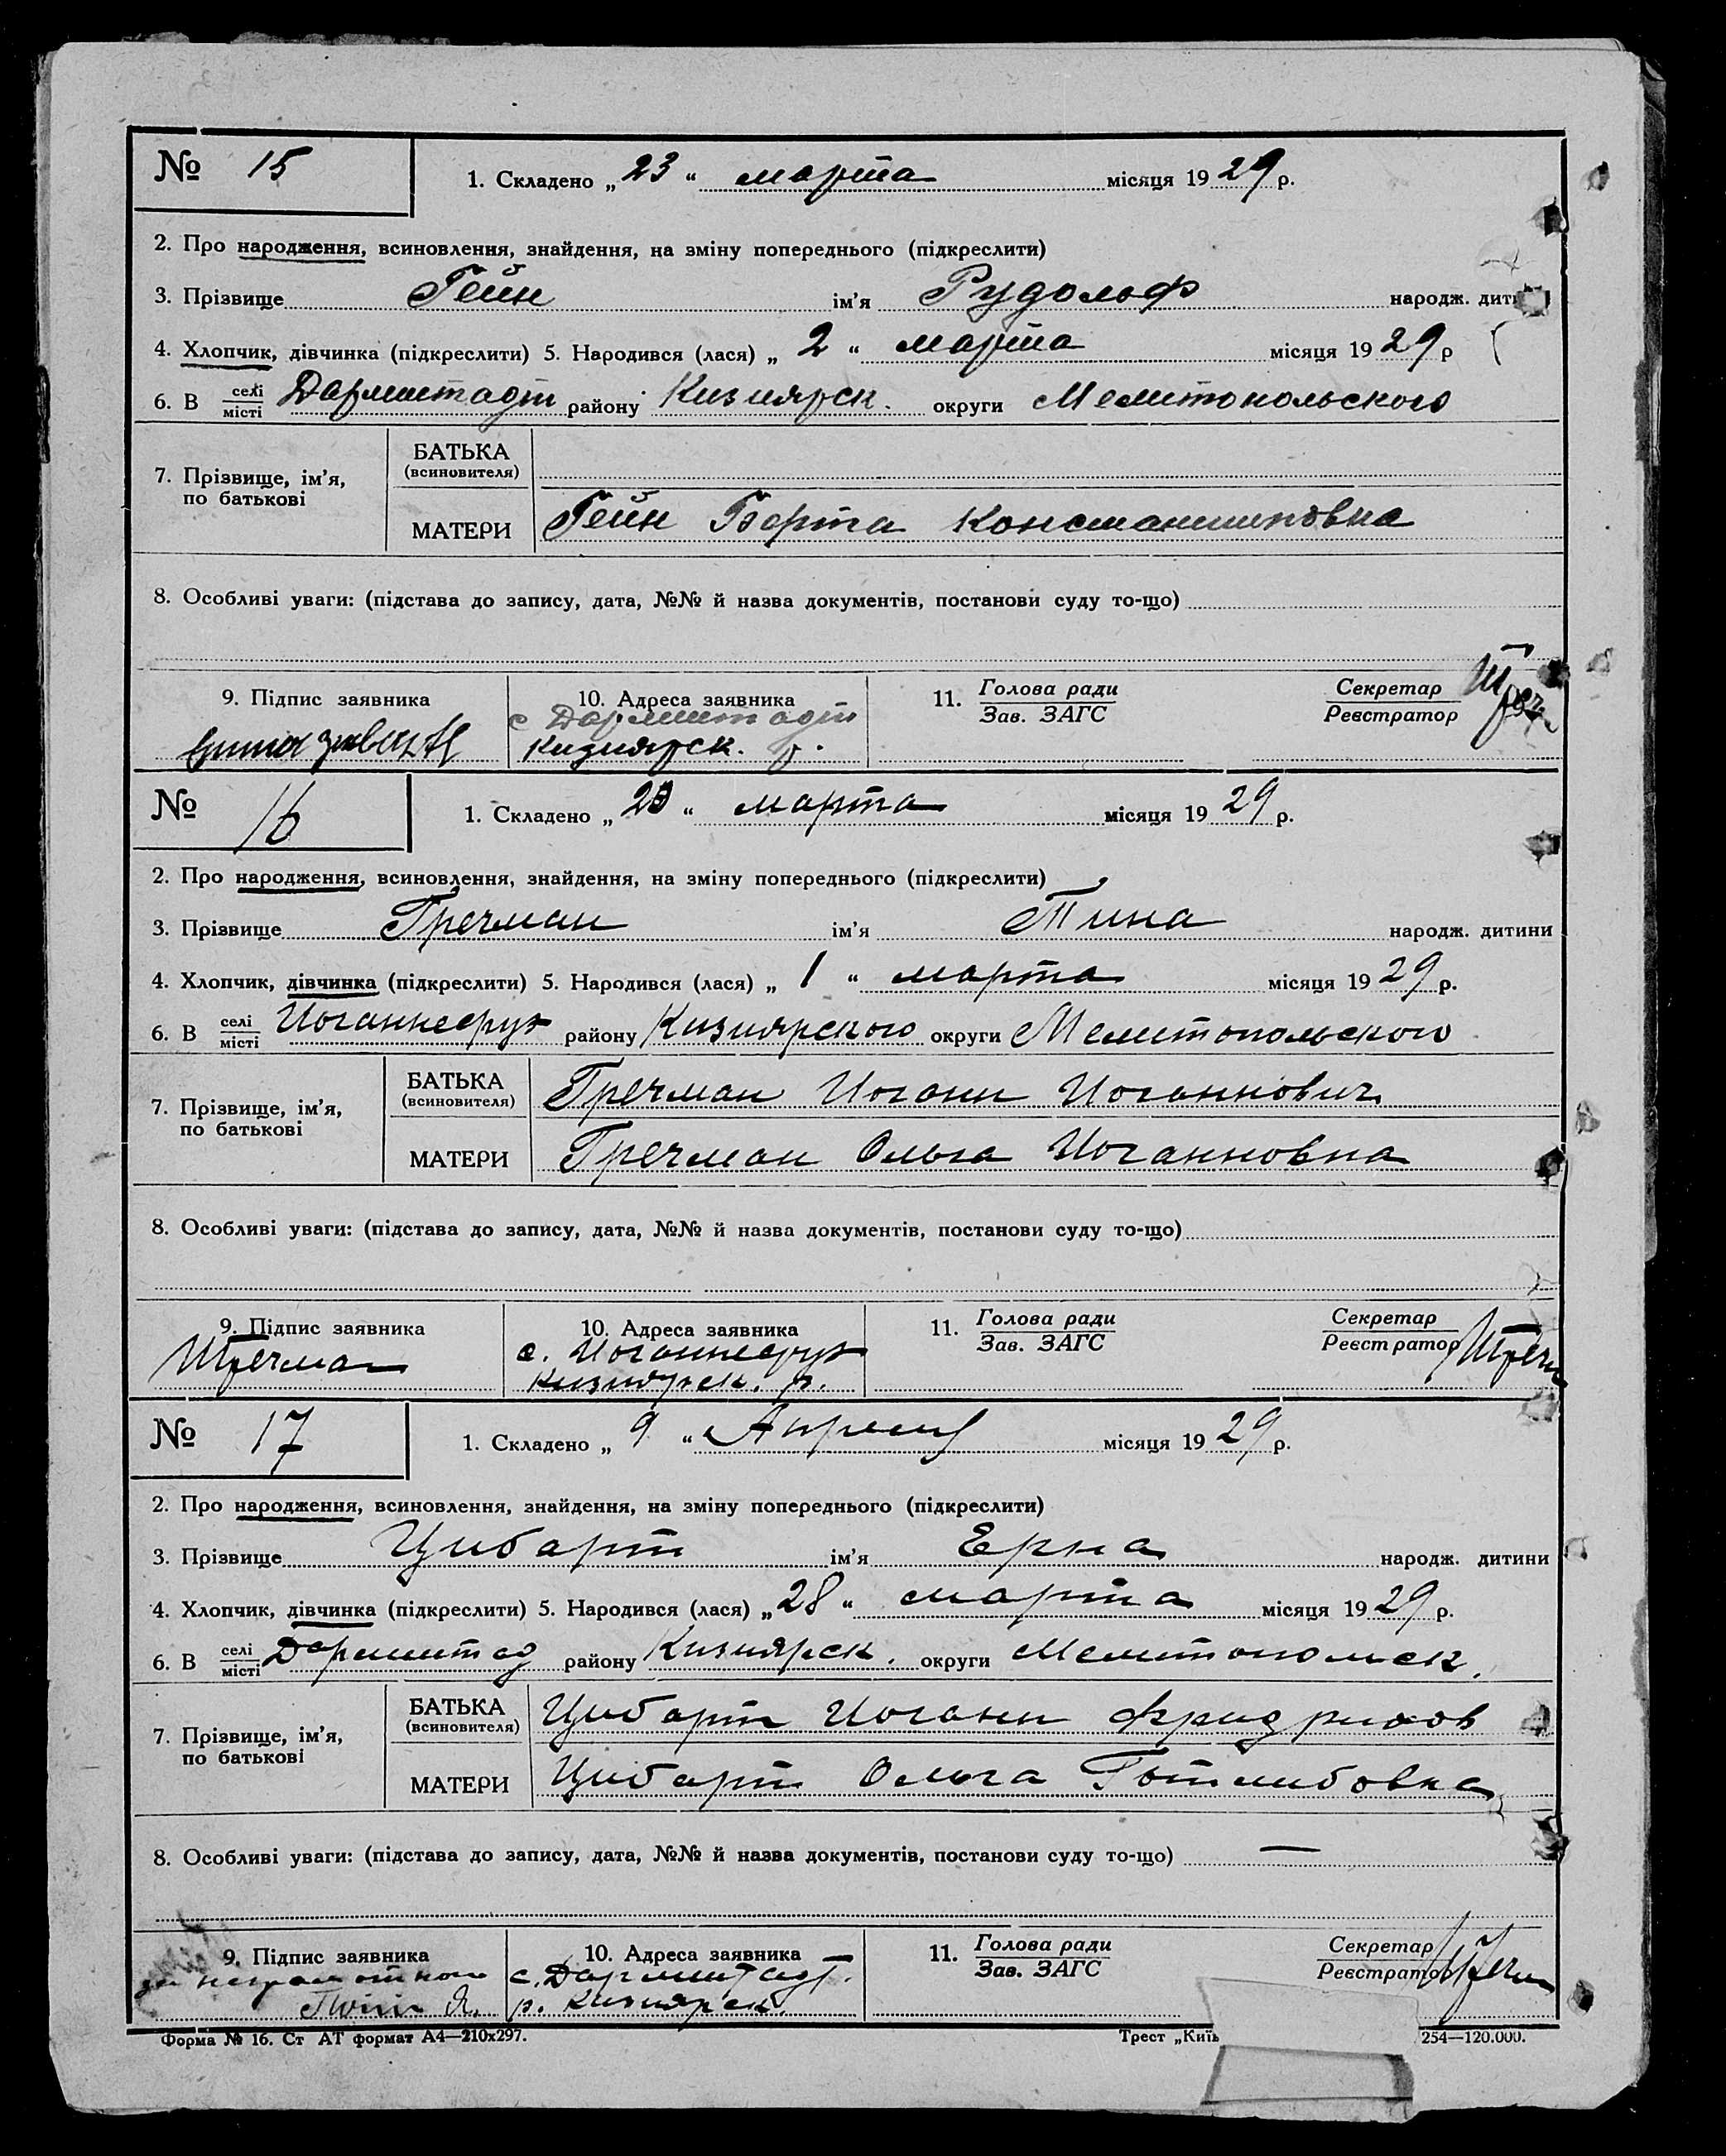 № 15 1. Складено „ 23 “ марта місяця 1929 р.
2. Про народження, всиновлення, знайдення, на зміну попереднього (підкреслити)
3. Прізвище Гейн ім’я Рудольф народж. дити
4. Хлопчик, дівчинка (підкреслити) 5. Народився (лася) „ 2 “ марта місяця 1929 р
6. В селі місті Дармштадт району Кизиярск. округи Мелитопольского
БАТЬКА
(всиновителя)
7. Прізвище, ім’я,
по батькові
МАТЕРИ Гейн Берта Константиновна
8. Особливі уваги: (підстава до запису, дата, №№ й назва документів, постанови суду то-що)
9. Підпис заявника 10. Адреса заявника 11. Голова ради Секретар
Зав. ЗАГС Реєстратор
с Дармштадт
Кизиярск. р.
№ 16 1. Складено „ 23 “ марта місяця 1929 р.
2. Про народження, всиновлення, знайдення, на зміну попереднього (підкреслити)
3. Прізвище Тречман ім’я Тина народж. дитини
4. Хлопчик, дівчинка (підкреслити) 5. Народився (лася) „ 1 “ марта місяця 1929 р.
6. В селі місті Иоганнесрух району Кизиярского округи Мелитопольского
БАТЬКА Тречман Иоганн Иоганнович
(всиновителя)
7. Прізвище, ім’я,
по батькові
МАТЕРИ Тречман Ольга Иоганновна
8. Особливі уваги: (підстава до запису, дата, №№ й назва документів, постанови суду то-що)
9. Підпис заявника 10. Адреса заявника 11. Голова ради Секретар
Зав. ЗАГС Реєстратор
Тречман с. Иоганнесрух
Кизиярск. р.
№ 17 1. Складено „ 9 “ Апреля 1929 р. місяця
2. Про народження, всиновлення, знайдення, на зміну попереднього (підкреслити)
3. Прізвище Цибарт ім’я Ерна народж. дитини
4. Хлопчик, дівчинка (підкреслити) 5. Народився (лася) „ 28 “ марта місяця 1929 р.
6. В селі місті Дармштад району Кизиярск. округи Мелитопольск.
БАТЬКА Цибарт Иоганн Фридрихов
(всиновителя)
7. Прізвище, ім’я,
по батькові
МАТЕРИ Цибарт Ольга Готлибовна
8. Особливі уваги: (підстава до запису, дата, №№ й назва документів, постанови суду то-що) —
9. Підпис заявника 10. Адреса заявника 11. Голова ради Секретар
Зав. ЗАГС Реєстратор
за неграмотного с. Дармштадт.
р. Кизиярск.
Форма № 16. Ст АТ формат А4—210х297. Трест „Київ 254—120.000.